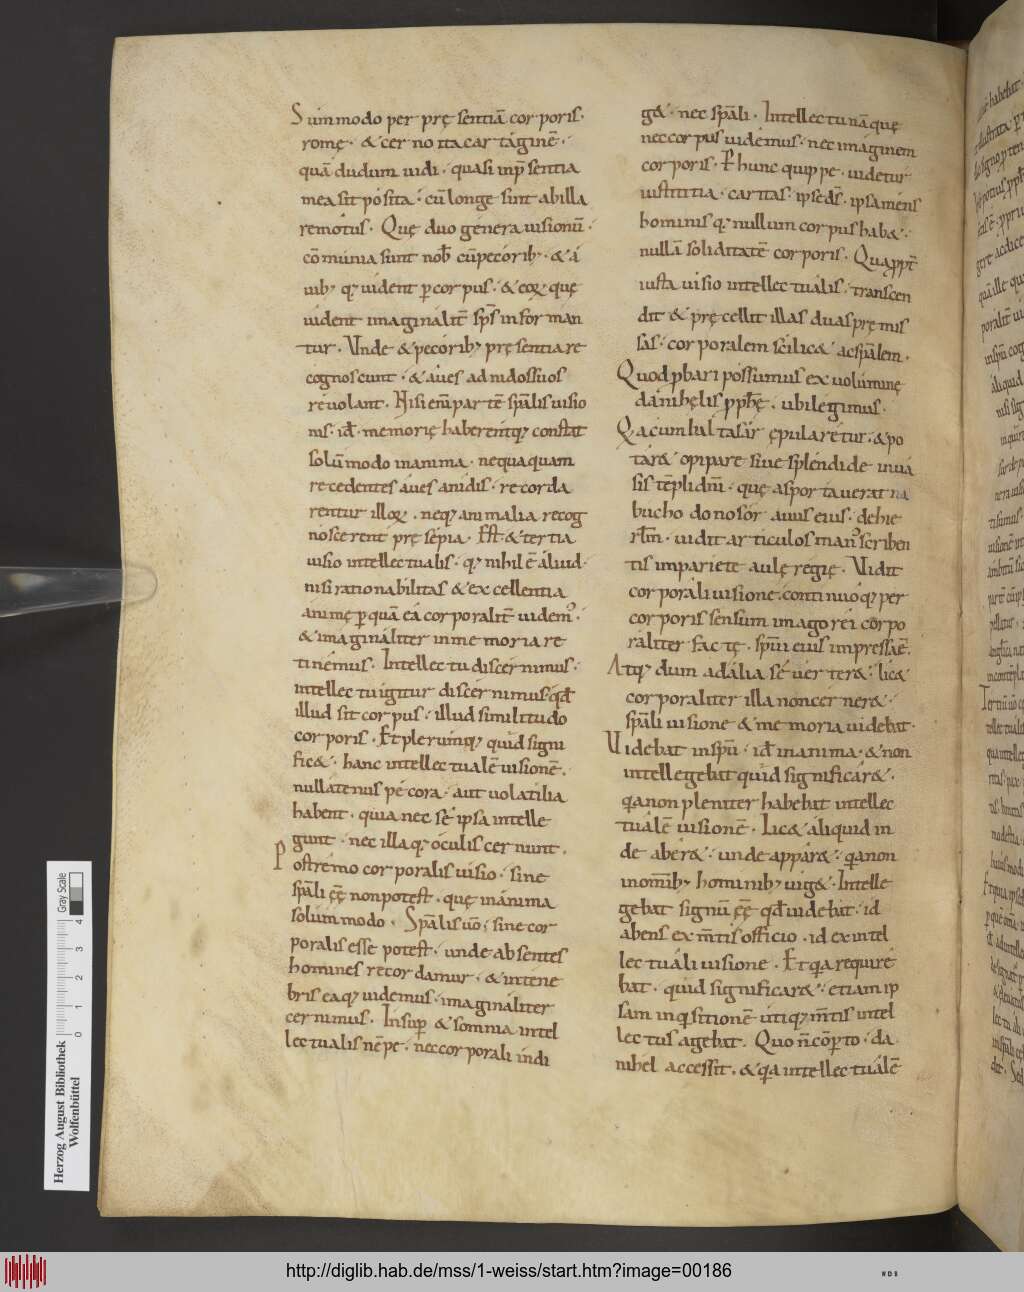 Summodo per pręsentiā corporis·
romę· & cerno ita cartaginē·
quā dudum uidi· quasi inp̄sentia
mea sit posita· cū longe sunt ab illa
remotus· Quę duo genera uisionū·
cōmunia sunt nob̄ cū pecorib;· & a
uib; q; uident p corpus· & eoꝝ quę
uident imaginalit̄ sp̄s informan
tur· Unde & pecorib; pręsentia re
cognoscunt· & aues ad nidos suos
reuolant· Nisi em̄ partē sp̄alis uisio
nis· id· memorię haberent q; constat
solūmodo in anima· nequaquam
recedentes aues a nidis· recorda
rentur illoꝝ· neq; animalia recog
noscerent pręsepia· Est & tertia
uisio intellectualis· q; nihil ē aliud·
nisi rationabilitas & excellentia
animę p quā ea corporalit̄ uidem'·
& imaginaliter in memoria re
tinemus· Intellectu discernimus·
intellectu igitur discernimus qd̄
illud sit corpus· illud similitudo
corporis· Et plerumq; quid signi
fic&· hanc intellectualē uisionē·
nullatenus pecora· aut uolatilia
habent· quia nec se ipsa intelle
gunt· nec illa q; oculis cernunt·
Postremo corporalis uisio· sine
sp̄ali ęę non potest· quę in anima
solummodo· Sp̄alis ūo· sine cor
poralis esse potest· unde absentes
homines recordamur· & in tene
bris eaq; uidemus· imaginaliter
cernimus· Insup & somnia intel
lectualis nēpe· nec corporali indi
g&· nec sp̄ali· Intellectu nāquę
nec corpus uidemus· nec imaginem
corporis· P hunc quippe· uidetur
iustitia· caritas· ipse ds̄· ipsa mens
hominis q; nullum corpus hab&·
nullā soliditatē corporis· Quappt̄
iusta uisio intellectualis· transcen
dit & pręcellit illas duas pręmis
sas· corporalem scilic& ac sp̄alem·
Quod pbari possumus ex uolumine
danihelis pph̄ę· ubi legimus·
Qa cum baltasar ępularetur· & po
tar& opipare siue splendide in ua
sis tēpli dn̄i· quę asportauerat na
buchodonosor auus eius· de hie
rl̄m· uidit articulos man' scriben
tis in pariete aulę regię· Uidit
corporali uisione· continuo q; per
corporis sensum imago rei corpo
raliter factę· sp̄ui eius impressa ē·
Atq; dum ad alia se uerter&· lic&
corporaliter illa non cerner&·
sp̄ali uisione & memoria uidebat·
Uidebat in sp̄u· id in anima· & non
intellegebat quid significar&·
qa non pleniter habebat intellec
tualē uisionē· Lic& aliquid in
de aber&· unde appar&· qa non
in om̄ib; hominib; uig&· Intelle
gebat signū ęę qd̄ uidebat· id
abens ex m̄tis officio· id ex intel
lectuali uisione· Et qa require
bat· quid significar&· etiam ip
sam inqisitionē utiq; m̄tis intel
lectus agebat· Quo n̄ cōpto· da
nihel accessit· & qa intellectualē
Herzog August Bibliothek
Wolfenbüttel
Gray Scale
0 1 2 3 4
http://diglib.hab.de/mss/1-weiss/start.htm?image=00186